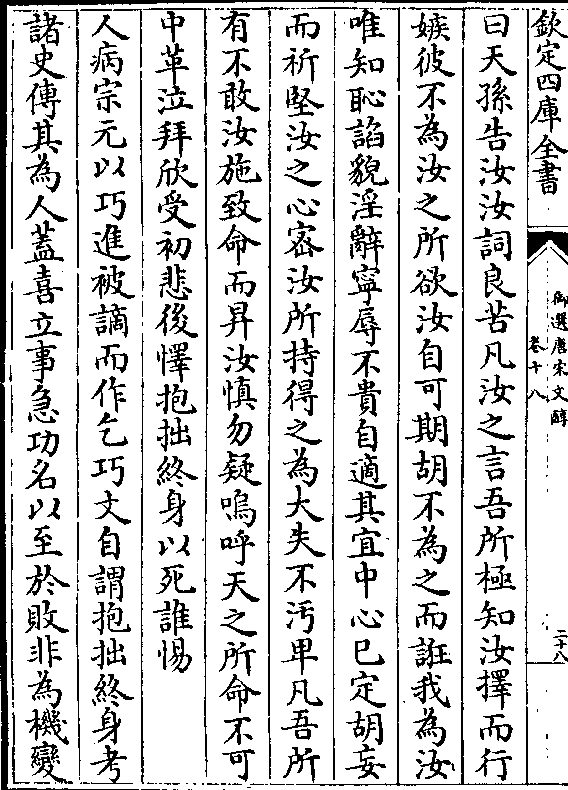 欽定四庫全書
御選唐宋文醇
卷十八
二十八
曰天孫告汝汝詞良苦凡汝之言吾所極知汝擇而行
嫉彼不為汝之所欲汝自可期胡不為之而誑我為汝
唯知恥諂貌淫辭寧辱不貴自適其宜中心已定胡妄
而祈堅汝之心宻汝所持得之為大失不汚卑凡吾所
有不敢汝施致命而昇汝慎勿疑嗚呼天之所命不可
中革泣拜欣受初悲後懌抱拙終身以死誰惕
人病宗元以巧進被謫而作乞巧文自謂抱拙終身考
諸史傳其為人蓋喜立事急功名以至於敗非為機變